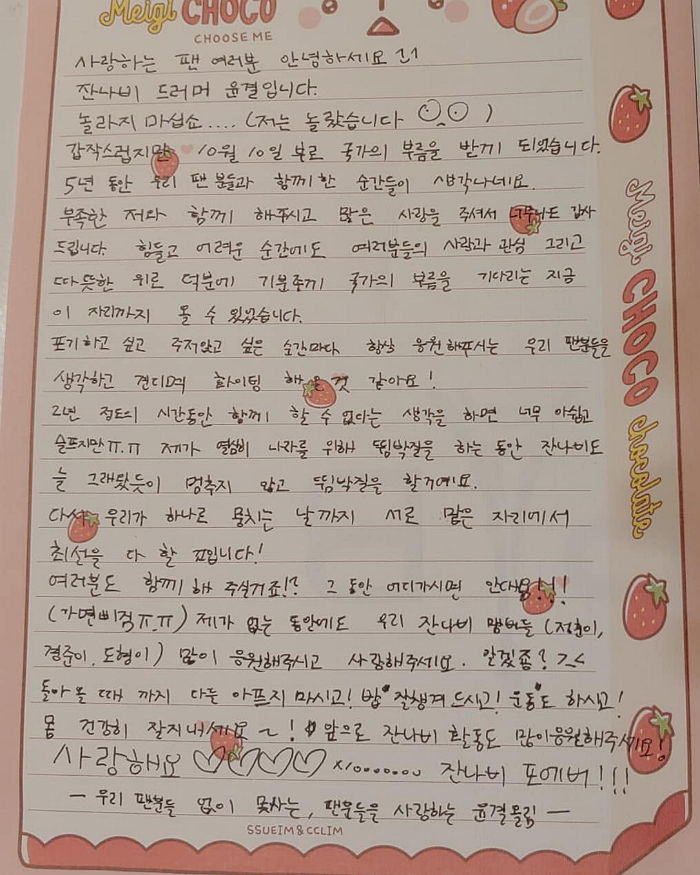 Meigi CHOCO
CHOOSE ME
사랑하는 팬 여러분 안녕하세요
잔나비 드러머 윤결입니다.
놀라지 마십쇼.... (저는 놀랐습니다 )
갑작스럽지만 10월 10일 부로 국가의 부름을 받게 되었습니다.
5년 동안 우리 팬 분들과 함께한 순간들이 생각나네요.
부족한 저와 함께 해주시고 많은 사랑을 주셔서 너무나도 감사
드립니다. 힘들고 어려운 순간에도 여러분들의 사랑과 관심 그리고
따뜻한 위로 덕분에 기분좋게 국가의 부름을 기다리는 지금
이 자리까지 올 수 있었습니다.
포기하고 싶고 주저앉고 싶은 순간마다 항상 응원해주시는 우리 팬분들을
생각하고 견디며 화이팅 해온 것 같아요!
2년 정도의 시간동안 함께 할 수 없다는 생각을 하면 너무 아쉽고
슬프지만 ㅠ.ㅠ 제가 열심히 나라를 위해 뜀박질을 하는 동안 잔나비도
늘 그래왔듯이 멈추지 않고 뜀박질을 할거예요.
다시 우리가 하나로 뭉치는 날까지 서로 맡은 자리에서
최선을 다 할 꼬입니다!
여러분도 함께 해 주실거죠!? 그 동안 어디가시면 안대욤!!!
(가면삐짐ㅠ.ㅠ) 제가 없는 동안에도 우리 잔나비 멤버들 (정훈이,
경준이, 도형이) 많이 응원해주시고 사랑해주세요. 알겠죠? >.<
돌아올 때 까지 다들 아프지 마시고! 밥 잘챙겨 드시고! 운동도 하시고!
몸 건강히 잘지내세요~! 앞으로 잔나비 활동도 많이응원해주세요!
사랑해요 ♡♡♡♡ x100000000 잔나비 포에버!!!
- 우리 팬분들 없이 못사는, 팬분들을 사랑하는 윤결올림 -
SSUEIM & CCLIM
Meigi CHOCO chocolate